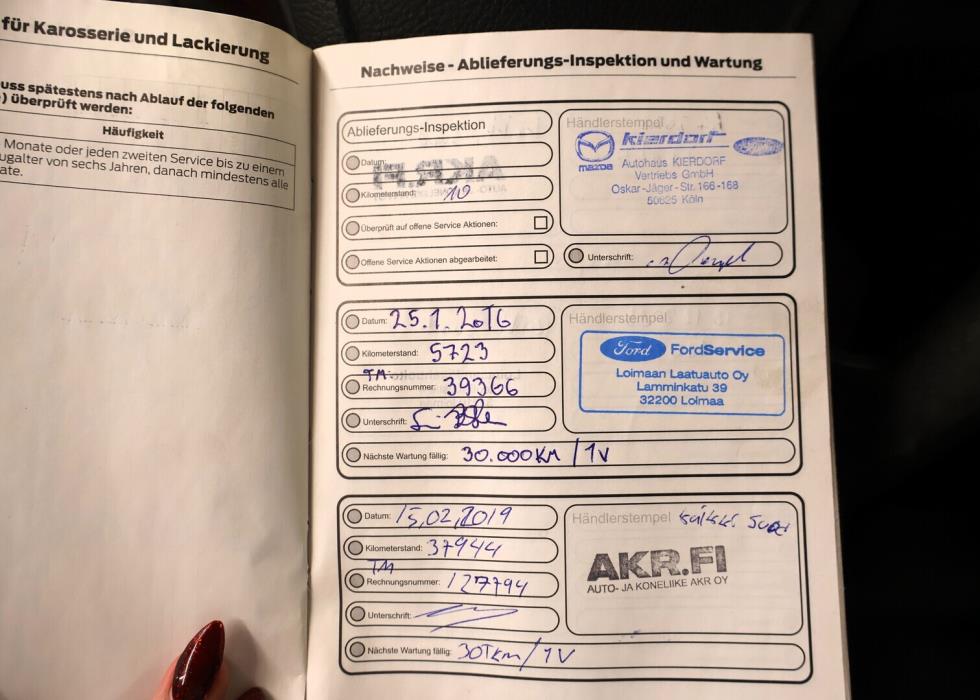 für Karosserie und Lackierung
uss spätestens nach Ablauf der folgenden
) überprüft werden:
Häufigkeit
Monate oder jeden zweiten Service bis zu einem
ugalter von sechs Jahren, danach mindestens alle
ate.
Nachweise - Ablieferungs-Inspektion und Wartung
Ablieferungs-Inspektion
Datum:
Kilometerstand: 10
Überprüft auf offene Service Aktionen:
Offene Service Aktionen abgearbeitet:
Händlerstempel
mazda
Kierdorf
Autohaus KIERDORF
Vertriebs GmbH
Oskar-Jäger-Str. 166-168
50825 Köln
Unterschrift:
Datum: 25.1.2016
Kilometerstand: 5723
TM.
Rechnungsnummer: 39366
Unterschrift:
Nächste Wartung fällig: 30.000KM / 1V
Händlerstempel
Ford FordService
Loimaan Laatuauto Oy
Lamminkatu 39
32200 Loimaa
Datum: 15,02,2019
Kilometerstand: 37944
TM
Rechnungsnummer: 127794
Unterschrift:
Nächste Wartung fällig: 30Tkm / 1V
Händlerstempel
AKR.FI
AUTO- JA KONELIIKE AKR OY